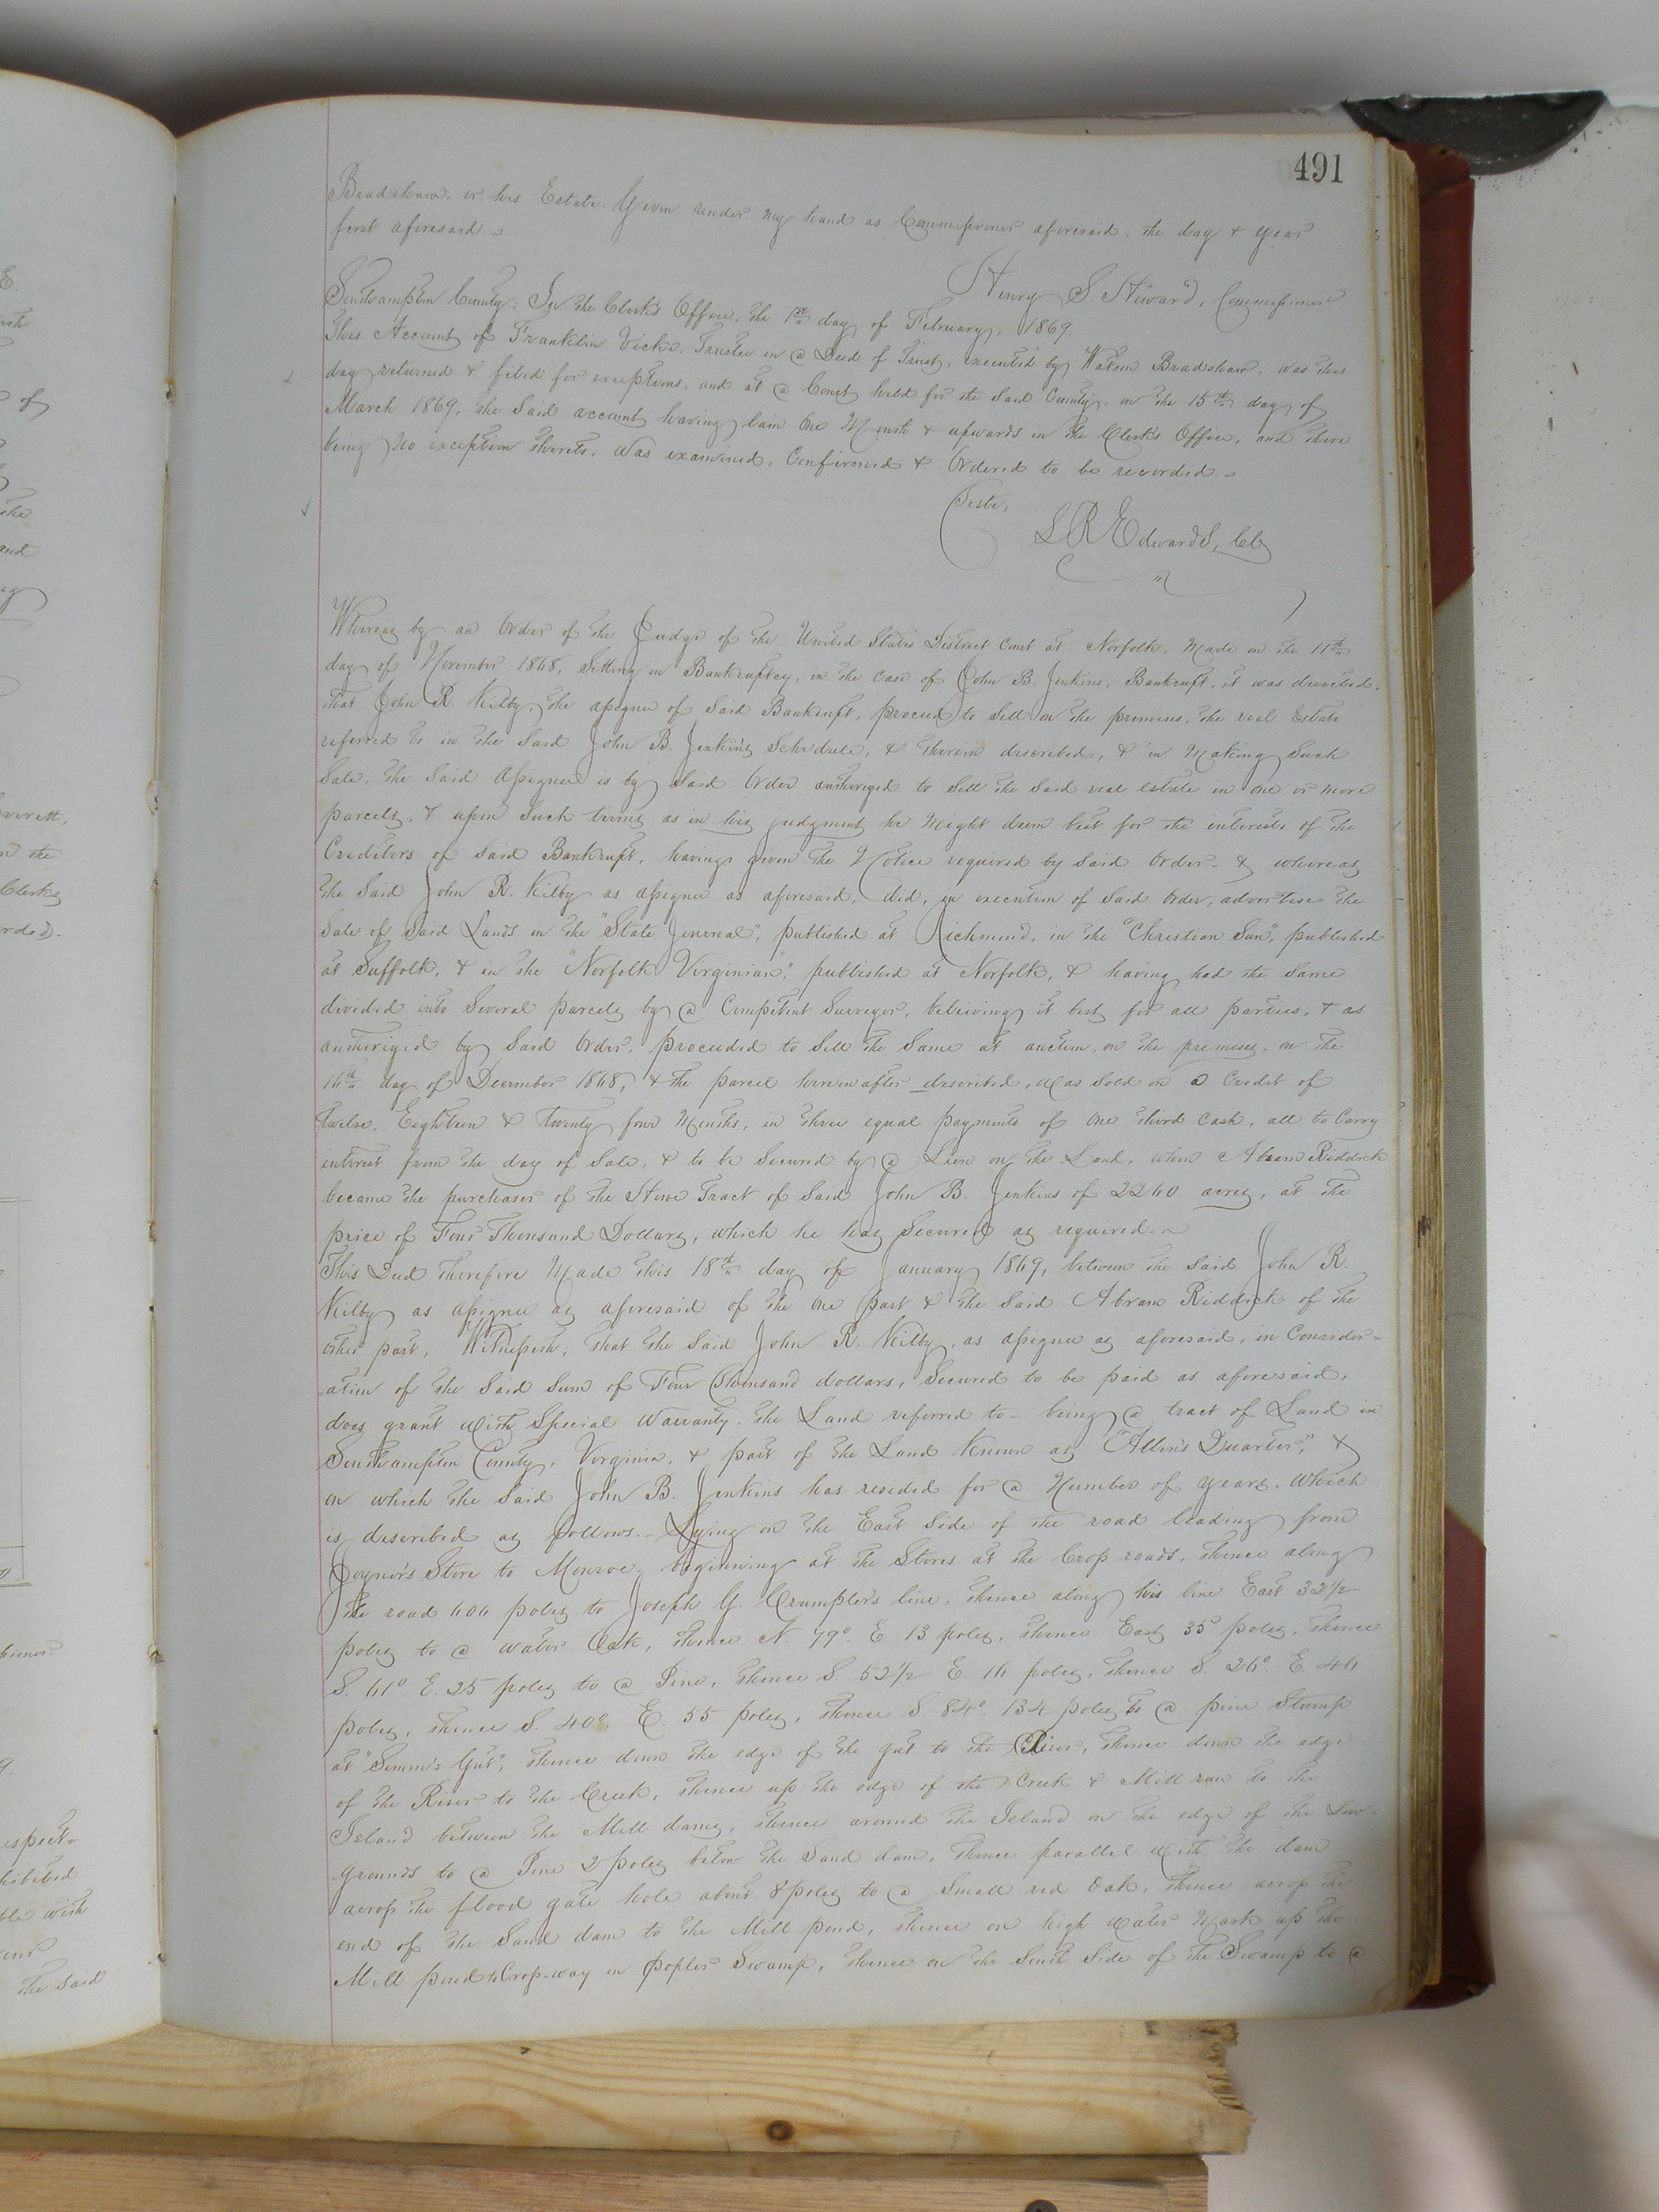 491
Bradshaw, or his Estate. Given under my hand as Commissioner aforesaid, the day & year
first aforesaid.
Henry S. Howard, Commissioner
Southampton County: In the Clerk's Office, the 1st day of February, 1869.
This Account of Franklin Vicks, Trustee in a Deed of Trust, executed by Watson Bradshaw, was this
day returned & filed for exceptions, and at a Court held for the Said County, on the 15th day of
March 1869, the Said account having lain One Month & upwards in the Clerk's Office, and there
being no exception thereto, was examined, Confirmed & Ordered to be recorded.
Teste,
L R Edwards, Clk
Whereas by an Order of the Judge of the United States District Court at Norfolk, made on the 11th
day of November 1868, Sitting in Bankruptcy, in the case of John B. Jenkins, Bankrupt, it was directed,
that John R. Kilby, the assignee of Said Bankrupt, proceed to Sell on the premises, the real Estate
referred to in the Said John B. Jenkins Schedule, & therein described, & in Making Such
Sale, the Said Assignee is by Said Order authorized to Sell the Said real estate in one or more
parcels, & upon Such terms as in his judgment he might deem best for the interests of the
Creditors of Said Bankrupt, having given the Notice required by Said Order - & whereas
the Said John R. Kilby as assignee as aforesaid, did, in execution of Said Order, advertise the
Sale of Said Lands in the "State Journal", published at Richmond, in the "Christian Sun", published
at Suffolk, & in the "Norfolk Virginian", published at Norfolk, & having had the Same
divided into Several parcels by a Competent Surveyor, believing it best for all parties, & as
authorized by Said Order, proceeded to Sell the Same at auction, on the premises, on the
16th day of December 1868, & the parcel hereinafter described, was Sold on a Credit of
twelve, Eighteen & twenty four Months, in three equal payments of One third Cash, all to Carry
interest from the day of Sale, & to be Secured by a Lien on the Land, when Abram Riddick
became the purchaser of the Home Tract of Said John B. Jenkins of 2260 acres, at the
price of Four Thousand Dollars, which he has Secured as required.
This Deed therefore Made this 18th day of January 1869, between the Said John R.
Kilby as assignee as aforesaid of the One part & the Said Abram Riddick of the
other part, Witnesseth; That the Said John R. Kilby, as assignee as aforesaid, in Consider-
ation of the Said Sum of Four Thousand dollars, Secured to be paid as aforesaid,
does grant with Special Warranty, the Land referred to - being a tract of Land in
Southampton County, Virginia, & part of the Land Known as "Allen's Quarter", &
on which the Said John B. Jenkins has resided for a Number of years, which
is described as follows. - Lying on the East Side of the road leading from
Joyner's Store to Monroe, beginning at the Stores at the Cross roads, thence along
the road 606 poles to Joseph G. Crumpler's line, thence along his line East 32 1/2
poles to a water Oak, thence N. 79° E. 13 poles, thence East 35 poles, thence
S. 61° E. 25 poles to a Pine, thence S. 52 1/2 E. 16 poles, thence S. 26° E. 46
poles, thence S. 40° E. 55 poles, thence S. 84° 134 poles to a pine Stump
at Gut", thence down the edge of the gut to the River, thence down the edge
of the River to the Creek, thence up the edge of the Creek & Mill run to the
Island between the Mill dams, thence around the Island on the edge of the Low-
grounds to a Pine 2 poles below the Sand dam, thence parallel with the dam
across the flood gate hole about 8 poles to a Small red Oak, thence across the
end of the Sand dam to the Mill pond, thence on high water Mark up the
Mill pond to Cross-way in Popler Swamp, thence on the South Side of the Swamp to a